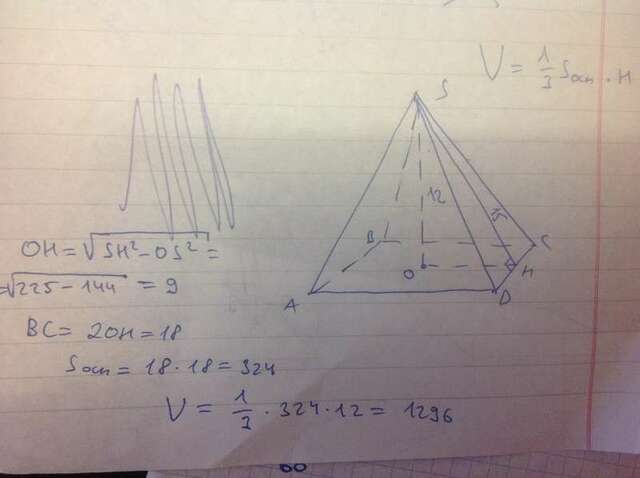 V = 1/3 Sосн · H
S
12
15
B
C
O
H
A
D
OH = √SH² - OS² =
= √225 - 144 = 9
BC = 2OH = 18
Sосн = 18 · 18 = 324
V = 1/3 · 324 · 12 = 1296